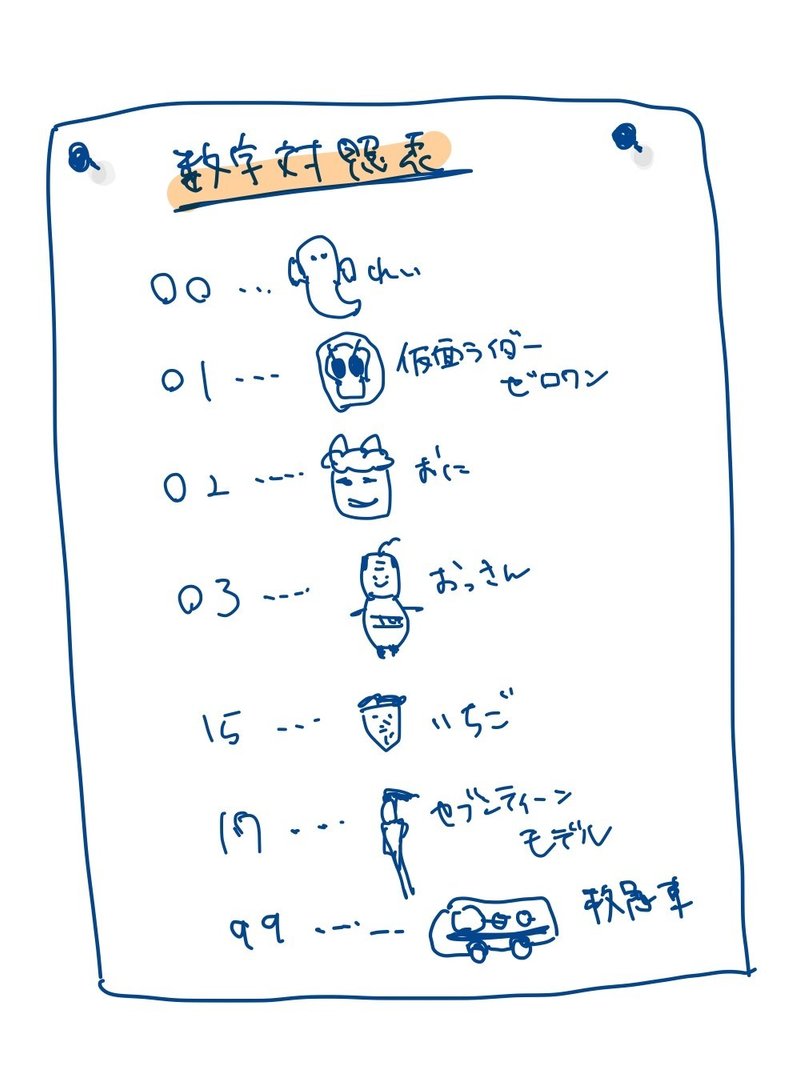 数字対照表
00 ... れい
01 ... 仮面ライダー
ゼロワン
02 ..... おに
03 .... おっさん
15 ... いちご
17 ... セブンティーン
モデル
99 ...... 救急車